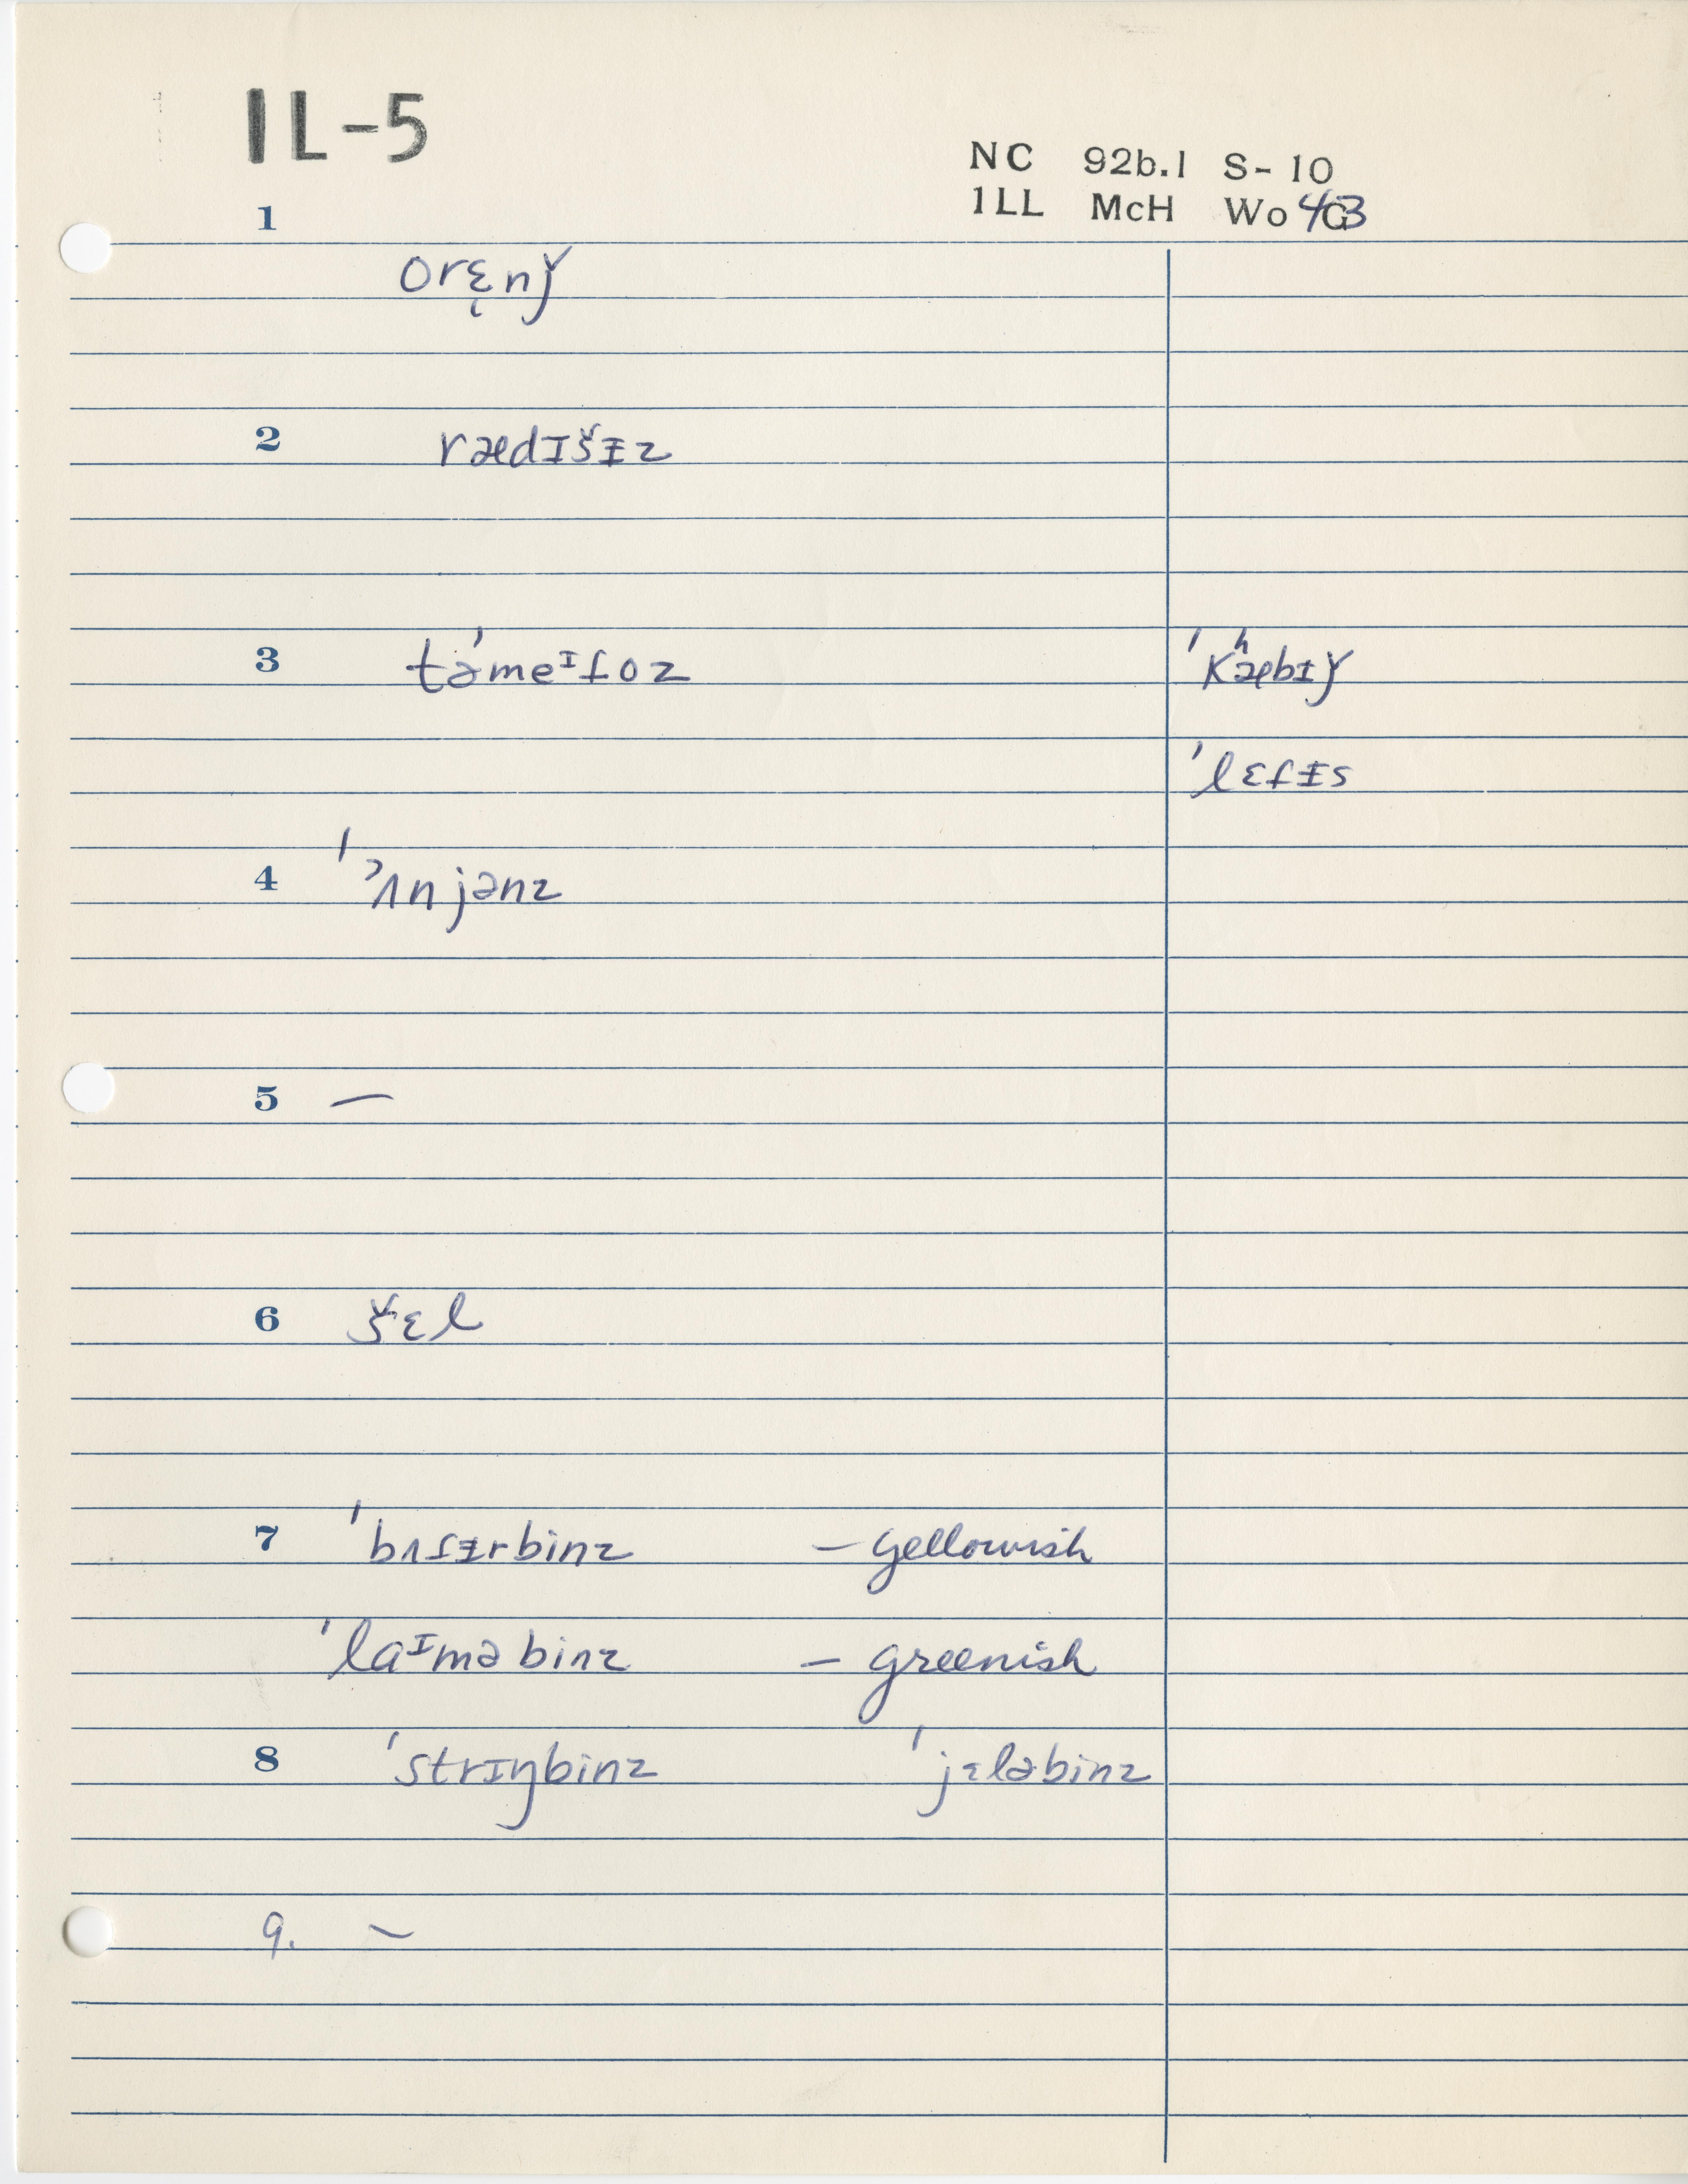 IL-5
NC 92b.1 S-10
1LL McH Wo 43
1 orɛ̨nǰ
2 rædɪšɨz
3 tə'meᶦɾoz 'kʰæbɪǰ
'lɛɾɨs
4 'ˀʌnjənz
5 —
6 šɛl
7 'bʌɾɨrbinz – yellowish
'laᶦmə binz – greenish
8 'strɪŋbinz 'jɛləbinz
9. –